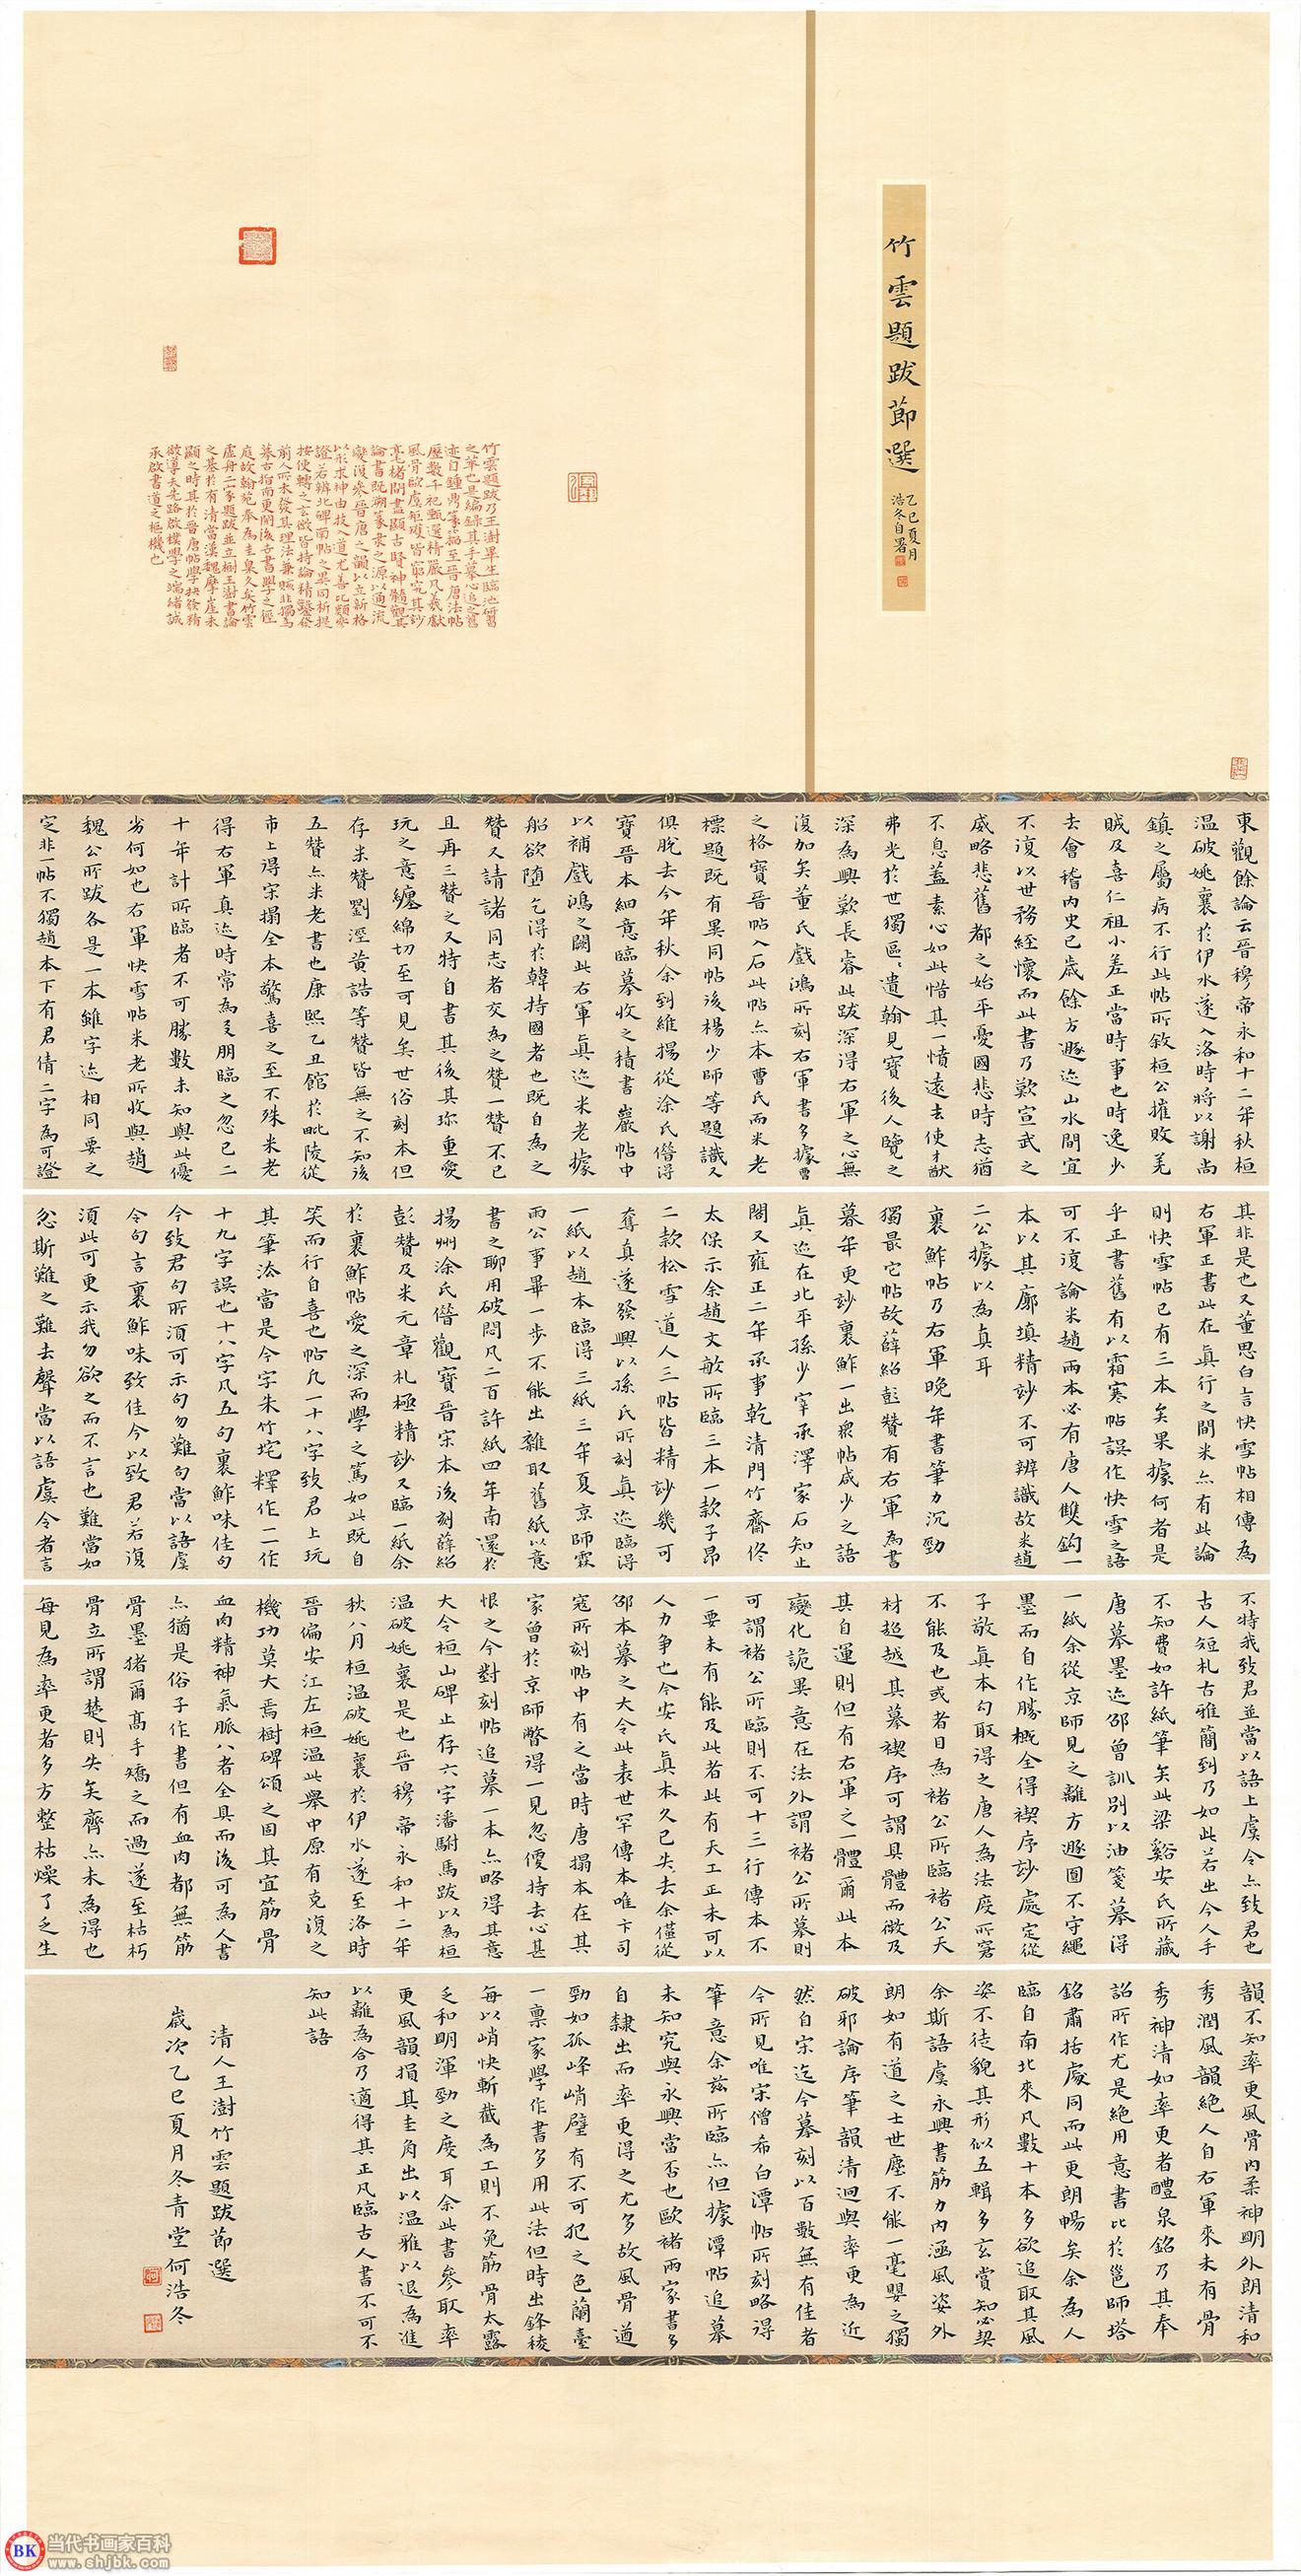 竹雲題跋節選
乙巳夏月
浩冬自署
竹雲題跋乃王澍畢生臨池研習
之萃也是編錄其手摹心追之舊
迹自鍾鼎篆籀至晉唐法帖
歷數千祀甄選精嚴凡羲獻
風骨歐虞矩矱皆窮究其玅
亳楮間盡顯古賢神髓觀其
論書既溯篆隶之源以通流
變復參晉唐之韻以立新格
以形求神由技入道尤善比類參
證若辨北碑南帖之異同析提
按使轉之言微皆持論精鑿發
前人所未發其理法兼賅非獨為
摹古指南更開後古書學之徑
庭故翰苑奉為圭臬久矣竹雲
虛舟二家題跋並立樹王澍書論
之基於有清當漢魏摩崖未
顯之時其於晉唐帖學抉發精
微導夫先路啟樸學之端緒誠
承啟書道之樞機也
東觀餘論云晉穆帝永和十二年秋桓
溫破姚襄於伊水遂入洛時將以謝尚
鎮之屬病不行此帖所敘桓公摧敗羌
賊及喜仁祖小差正當時事也時逸少
去會稽内史已歲餘方遯迹山水間宜
不復以世務經懷而此書乃歎宣武之
威略悲舊都之始平憂國悲時志猶
不息蓋素心如此惜其一憤遠去使才猷
弗光於世獨區區遺翰見寶後人覽之
深為興歎長睿此跋深得右軍之心無
復加矣董氏戲鴻所刻右軍書多據曹
之格寶晉帖入石此帖亦本曹氏而米老
標題既有異同帖後楊少師等題識又
俱脫去今年秋余到維揚從涂氏借得
寶晉本細意臨摹收之積書巖帖中
以補戲鴻之闕此右軍真迹米老據
船欲墮乞得於韓持國者也既自為之
贊又請諸同志者交為之贊一贊不已
且再三贊之又特自書其後其珍重愛
玩之意纏綿切至可見矣世俗刻本但
存米贊劉涇黃誥等贊皆無之不知後
五贊亦米老書也康熙乙丑館於毗陵從
市上得宋搨全本驚喜之至不殊米老
得右軍真迹時常為支朋臨之忽已二
十年計所臨者不可勝數未知與此優
劣何如也右軍快雪帖米老所收與趙
魏公所跋各是一本雖字迹相同要之
定非一帖不獨趙本下有君倩二字為可證
其非是也又董思白言快雪帖相傳為
右軍正書此在真行之間米亦有此論
則快雪帖已有三本矣果據何者是
乎正書舊有以霜寒帖誤作快雪之語
可不復論米趙兩本必有唐人雙鉤一
本以其廓填精玅不可辨識故米趙
二公據以為真耳
裹鮓帖乃右軍晚年書筆力沉勁
獨最它帖故薛紹彭贊有右軍為書
暮年更玅裹鮓一出衆帖咸少之語
真迹在北平孫少宰承澤家石知止
閣又雍正二年承事乾清門竹齋佟
太保示余趙文敏所臨三本一款子昂
二款松雪道人三帖皆精玅幾可
奪真遂發興以孫氏所刻真迹臨得
一紙以趙本臨得三紙三年夏京師霖
雨公事畢一步不能出雜取舊紙以意
書之聊用破悶凡二百許紙四年南還於
揚州涂氏借觀寶晉宋本後刻薛紹
彭贊及米元章札極精玅又臨一紙余
於裹鮓帖愛之深而學之篤如此既自
笑而行自喜也帖凡一十八字致君上玩
其筆泲當是今字朱竹垞釋作二一作
十九字誤也十八字凡五句裹鮓味佳句
今致君句所須可示句勿難句當以語虞
令句言裹鮓味致佳今以致君若復
須此可更示我勿欲之而不言也難當如
忿斯難之難去聲當以語虞令者言
不特我致君並當以語上虞令亦致君也
古人短札古雅簡到乃如此若出今人手
不知費如許紙筆矣此梁谿安氏所藏
唐摹墨迹邵曾訓別以油箋摹得
一紙余從京師見之離方遯圓不守繩
墨而自作勝概全得禊序玅處定從
子敬真本勾取得之唐人為法度所窘
不能及也或者目為褚公所臨褚公天
材超越其摹禊序可謂具體而微及
其自運則但有右軍之一體爾此本
變化詭異意在法外謂褚公所摹則
可謂褚公所臨則不可十三行傳本不
一要未有能及此者此有天工正未可以
人力争也今安氏真本久已失去余僅從
邵本摹之大令此表世罕傳本唯卞司
寇所刻帖中有之當時唐搨本在其
家曾於京師瞥得一見忽便持去心甚
恨之今對刻帖追摹一本亦略得其意
大令桓山碑止存六字潘駙馬跋以為桓
温破姚襄是也晉穆帝永和十二年
秋八月桓温破姚襄於伊水遂至洛時
晉偏安江左桓温此舉中原有克復之
機功莫大焉樹碑頌之固其宜筋骨
血肉精神氣脈八者全具而後可為人書
亦猶是俗子作書但有血肉都無筋
骨墨猪爾高手矯之而過遂至枯朽
骨立所謂楚則失矣齊亦未為得也
每見為率更者多方整枯燥了乏生
韻不知率更風骨内柔神明外朗清和
秀潤風韻絕人自右軍來未有骨
秀神清如率更者醴泉銘乃其奉
詔所作尤是絕用意書比於邕師塔
銘肅括處同而此更朗暢矣余為人
臨自南北來凡數十本多欲追取其風
姿不徒貌其形似五輯多玄賞知必契
余斯語虞永興書筋力内涵風姿外
朗如有道之士世塵不能一毫嬰之獨
破邪論序筆韻清迥與率更為近
然自宋迄今摹刻以百數無有佳者
今所見唯宋僧希白潭帖所刻略得
筆意余茲所臨亦但據潭帖追摹
未知究與永興當否也歐褚兩家書多
自隸出而率更得之尤多故風骨遒
勁如孤峰峭壁有不可犯之色蘭臺
一稟家學作書多用此法但時出鋒稜
每以峭快斬截為工則不免筋骨太露
乏和明渾勁之度耳余此書參取率
更風韻損其圭角出以温雅以退為進
以離為合乃適得其正凡臨古人書不可不
知此語
清人王澍竹雲題跋節選
歲次乙巳夏月冬青堂何浩冬
BK
当代书画家百科
www.shjbk.com